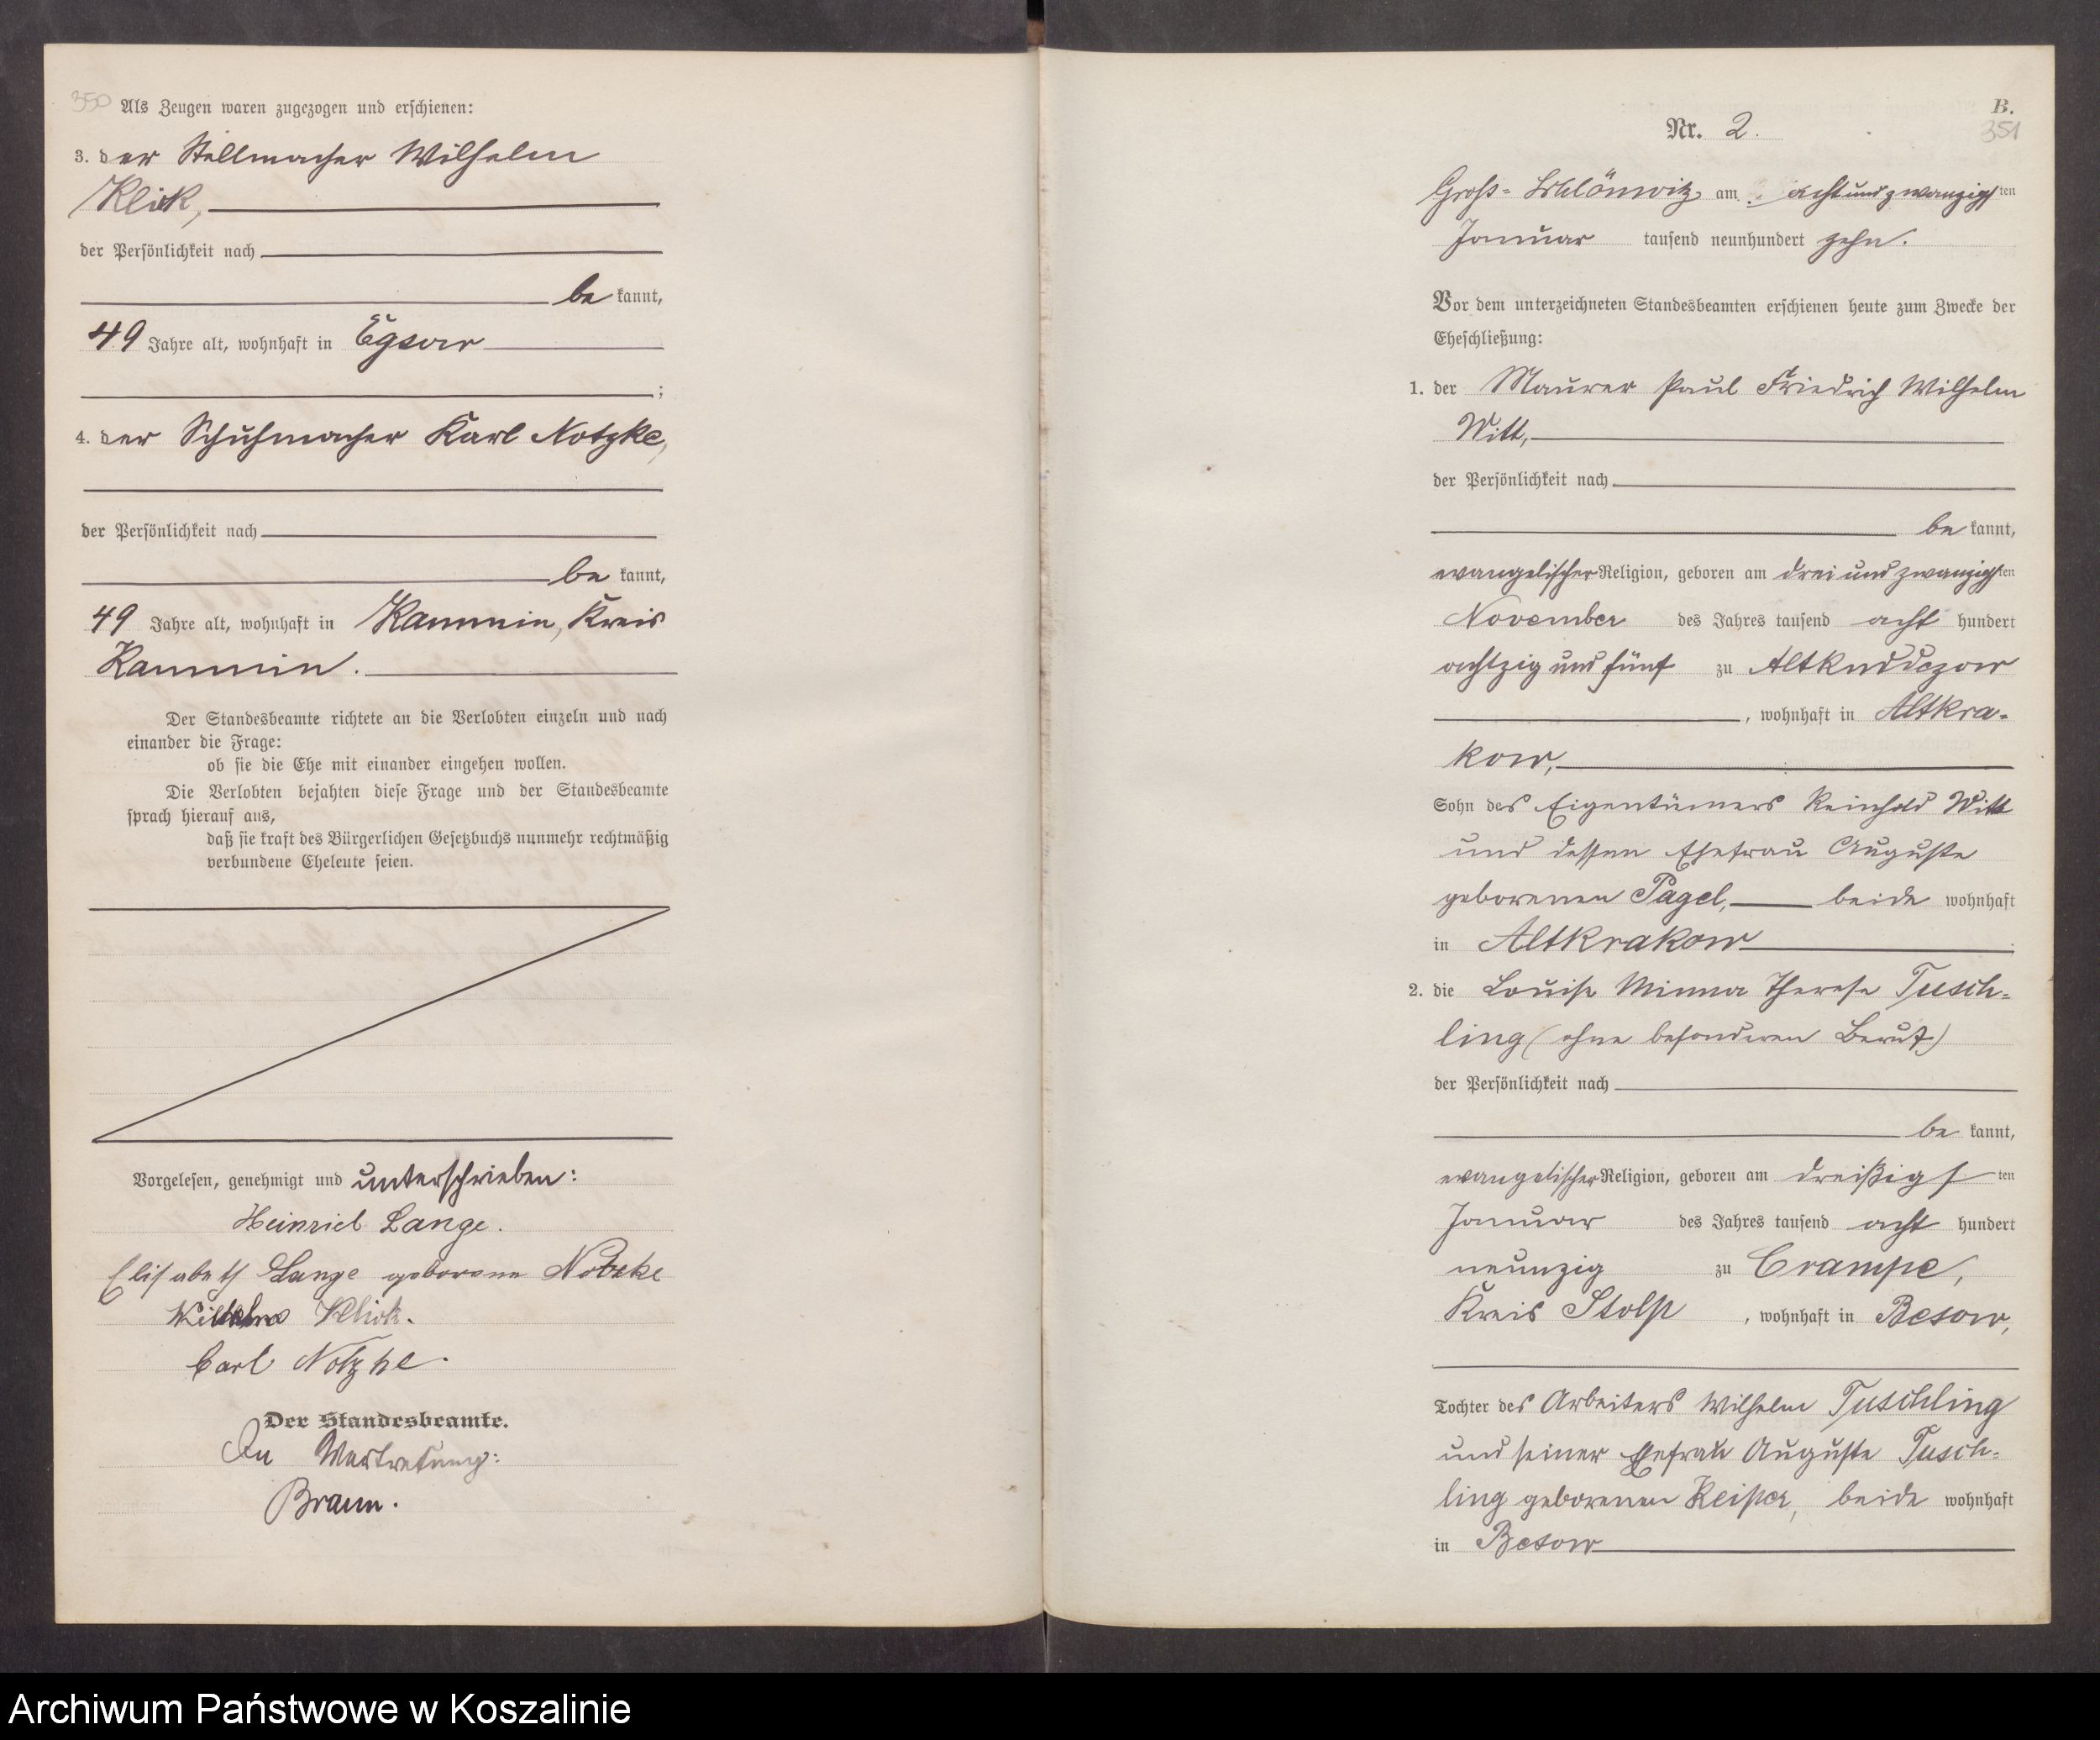 350
Als Zeugen waren zugezogen und erschienen:
3. der Stellmacher Wilhelm
Klick,
der Persönlichkeit nach
be kannt,
49 Jahre alt, wohnhaft in Egsow
;
4. der Schuhmacher Karl Notzke,
der Persönlichkeit nach
be kannt,
49 Jahre alt, wohnhaft in Kammin, Kreis
Kammin.
Der Standesbeamte richtete an die Verlobten einzeln und nach
einander die Frage:
ob sie die Ehe mit einander eingehen wollen.
Die Verlobten bejahten diese Frage und der Standesbeamte
sprach hierauf aus,
daß sie kraft des Bürgerlichen Gesetzbuchs nunmehr rechtmäßig
verbundene Eheleute seien.
Vorgelesen, genehmigt und unterschrieben:
Heinrich Lange.
Elisabeth Lange geborene
Wilhelm Klick.
Carl Notzke.
Der Standesbeamte.
In Vertretung:
Braun.
B.
351
Nr. 2.
Groß-Schlönwitz, am achtundzwanzigsten
Januar tausend neunhundert zehn.
Vor dem unterzeichneten Standesbeamten erschienen heute zum Zwecke der
Eheschließung:
1. der Maurer Paul Friedrich Wilhelm
Witt,
der Persönlichkeit nach
be kannt,
evangelischer Religion, geboren am dreiundzwanzigsten
November des Jahres tausend acht hundert
achtzig und fünf zu
, wohnhaft in Altkra-
kow,
Sohn des Eigentümers Reinhold Witt
und dessen Ehefrau Auguste
geborenen Pagel, beide wohnhaft
in Altkrakow
2. die Louise Minna Therese Tusch-
ling (ohne besonderen Beruf)
der Persönlichkeit nach
be kannt,
evangelischer Religion, geboren am dreißigsten
Januar des Jahres tausend acht hundert
neunzig zu Crampe,
Kreis Stolp, wohnhaft in Besow,
Tochter des Arbeiters Wilhelm Tuschling
und seiner Ehefrau Auguste Tusch-
ling geborenen beide wohnhaft
in Besow
Archiwum Państwowe w Koszalinie